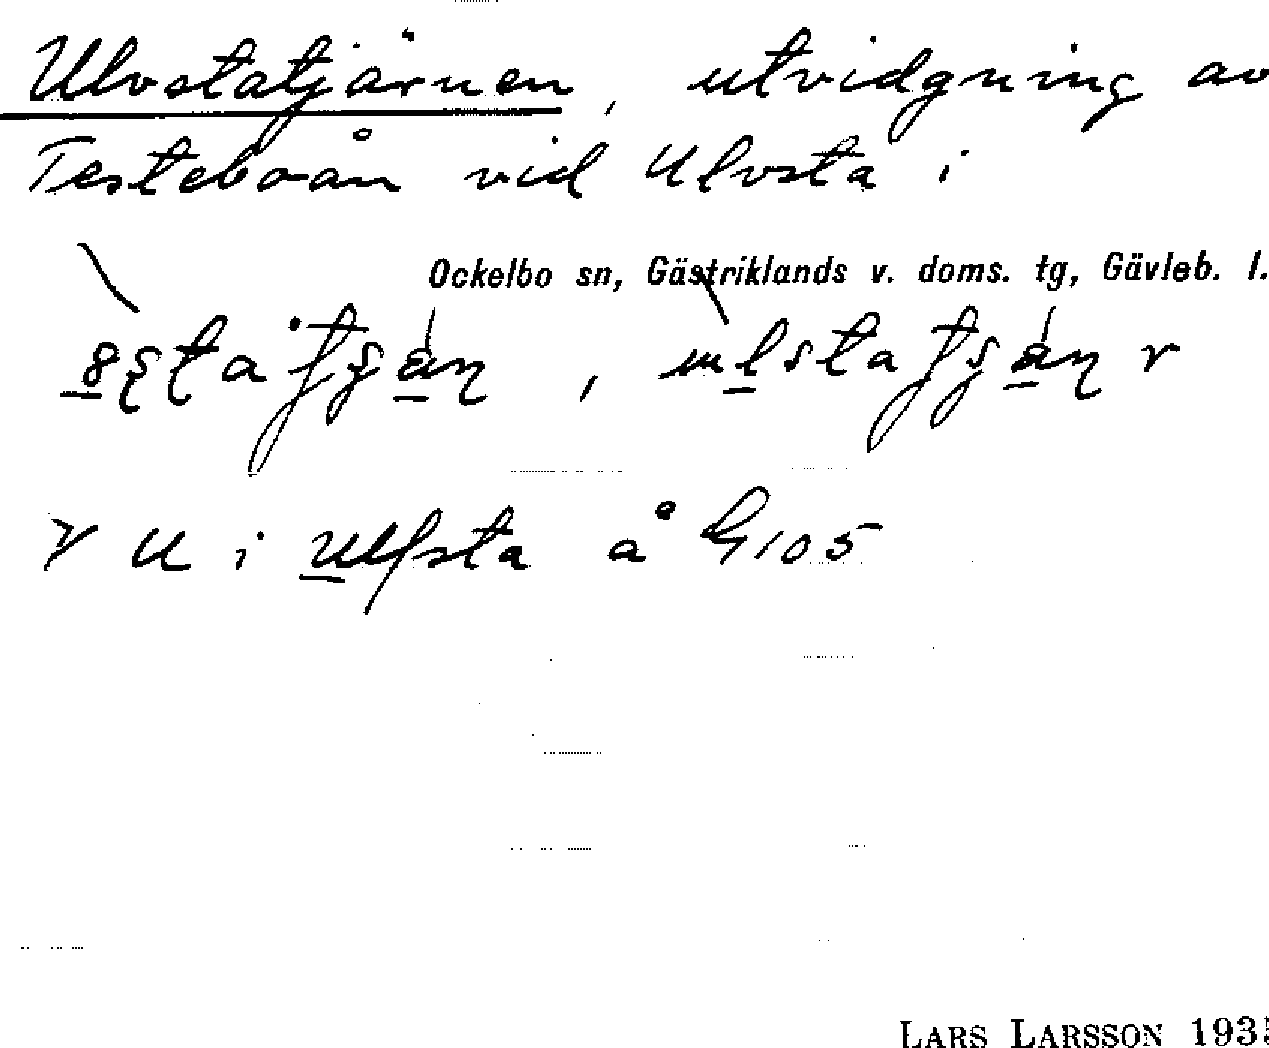 Ulvstatjärnen, utvidgning av
Testeboån vid Ulvsta i
Ockelbo sn, Gästriklands v. doms. tg, Gävleb. l.
U i Ulfsta å G 105
LARS LARSSON 193